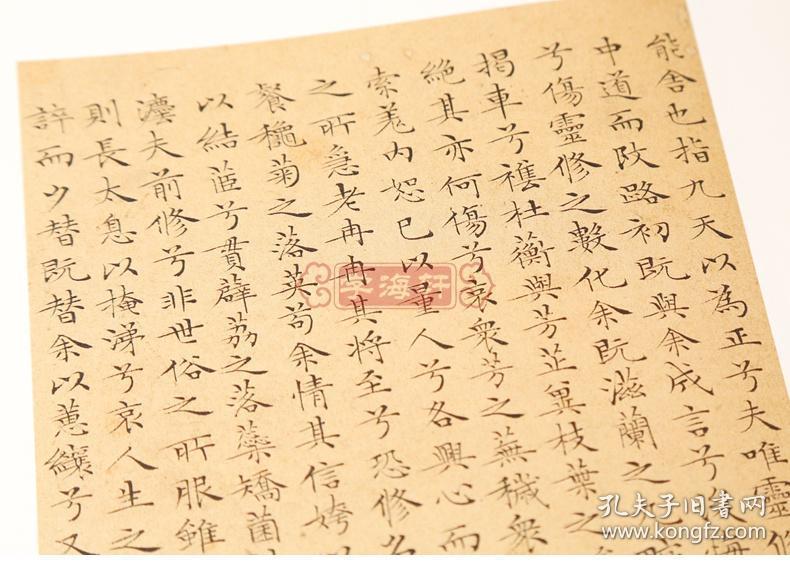 能舍也指九天以為正兮夫唯靈修
中道而改路初既與余成言兮後悔
兮傷靈修之數化余既滋蘭之九畹
揭車兮襍杜蘅與芳芷冀枝葉之
絕其亦何傷兮哀衆芳之蕪穢衆
索羌內恕己以量人兮各興心而
之所急老冉冉其將至兮恐修名
餐秋菊之落英苟余情其信姱
以結茞兮貫薜荔之落蘂矯菌
謇夫前修兮非世俗之所服雖
則長太息以掩涕兮哀人生之
誶而夕替既替余以蕙纕兮又
學海軒
孔夫子旧书网
www.kongfz.com